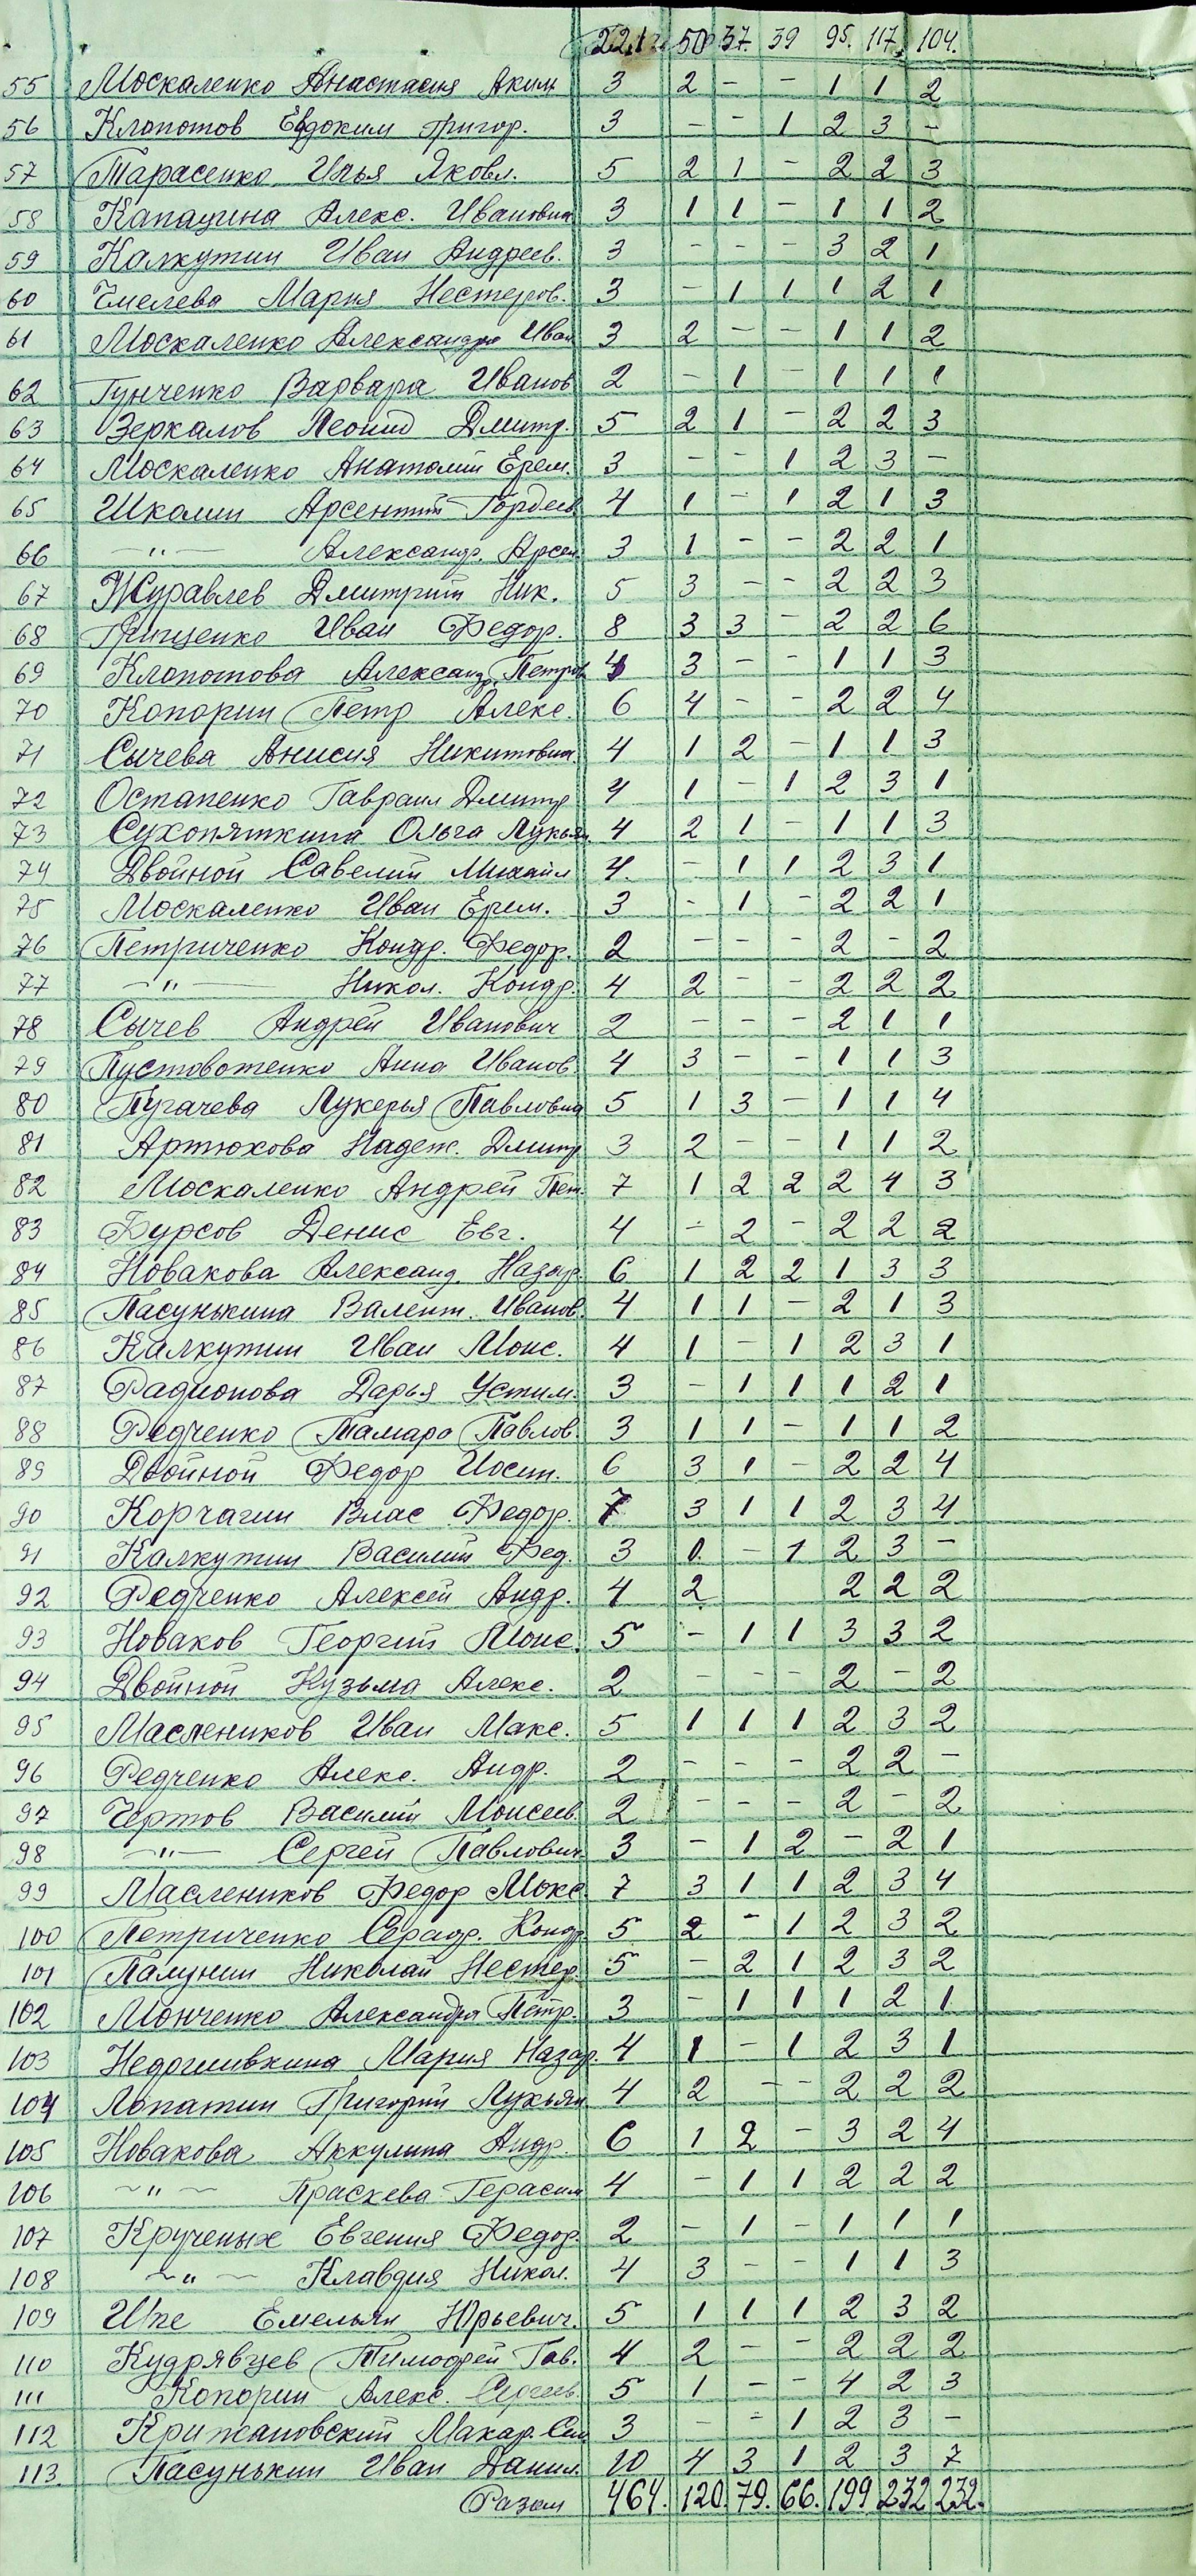 221 50 37. 39 95. 117. 104.
55 Москаленко Анастасия Аким 3 2 - - 1 1 2
56 Клопотов Евдоким Григор. 3 - - 1 2 3 -
57 Тарасенко Илья Яковл. 5 2 1 - 2 2 3
58 Капацина Алекс. Ивановна 3 1 1 - 1 1 2
59 Калкутин Иван Андреев. 3 - - - 3 2 1
60 Чмелева Мария Нестеров. 3 - 1 1 1 2 1
61 Москаленко Александра Иван 3 2 - - 1 1 2
62 Гунченко Варвара Иванов 2 - 1 - 1 1 1
63 Зеркалов Леонид Дмитр. 5 2 1 - 2 2 3
64 Москаленко Анатолий Ерем. 3 - - 1 2 3 -
65 Шкалин Арсентий Гордеев 4 1 - 1 2 1 3
66 -"- Александр. Арсен. 3 1 - - 2 2 1
67 Журавлев Дмитрий Ник. 5 3 - - 2 2 3
68 Грищенко Иван Федор. 8 3 3 - 2 2 6
69 Клопотова Александ. Петров 4 3 - - 1 1 3
70 Копорин Петр Алекс. 6 4 - 2 2 4
71 Сычева Анисия Никитовна. 4 1 2 - 1 1 3
72 Остапенко Гавраил Дмитр 4 1 - 1 2 3 1
73 Сухопяткина Ольга Лукьян. 4 2 1 - 1 1 3
74 Двойной Савелий Михайл 4. - 1 1 2 3 1
75 Москаленко Иван Ерем. 3 - 1 - 2 2 1
76 Петриченко Кондр. Федор. 2 - - - 2 - 2
77 -"- Никол. Кондр. 4 2 - 2 2 2
78 Сычев Андрей Иванович 2 - - - 2 1 1
79 Пустовотенко Анна Иванов. 4 3 - - 1 1 3
80 Пугачева Лукерья Павловна 5 1 3 - 1 1 4
81 Артюхова Надеж. Дмитр 3 2 - - 1 1 2
82 Москаленко Андрей Пет. 7 1 2 2 2 4 3
83 Фурсов Денис Евг. 4 - 2 - 2 2 2
84 Новакова Александ. Назар. 6 1 2 2 1 3 3
85 Пасунькина Валент. Иванов. 4 1 1 - 2 1 3
86 Калкутин Иван Моис. 4 1 - 1 2 3 1
87 Радионова Дарья Устим. 3 - 1 1 1 2 1
88 Редченко Тамара Павлов. 3 1 1 - 1 1 2
89 Двойной Федор Иосип. 6 3 1 - 2 2 4
90 Корчагин Влас Федор. 7 3 1 1 2 3 4
91 Калкутин Василий Фед. 3 0. - 1 2 3 -
92 Редченко Алексей Андр. 4 2 2 2 2
93 Новаков Георгий Моис. 5 - 1 1 3 3 2
94 Двойной Кузьма Алекс. 2 - - - 2 - 2
95 Маслеников Иван Макс. 5 1 1 1 2 3 2
96 Редченко Алекс. Андр. 2 - - - 2 2 -
97 Чертов Василий Моисеев. 2 - - - 2 - 2
98 -"- Сергей Павлович 3 - 1 2 - 2 1
99 Маслеников Федор Макс. 7 3 1 1 2 3 4
100 Петриченко Серафр. Кондр 5 2 - 1 2 3 2
101 Палунин Николай Нестер. 5 - 2 1 2 3 2
102 Монченко Александра Петр. 3 - 1 1 1 2 1
103 Недошивкина Мария Назар. 4 1 - 1 2 3 1
104 Лопатин Григорий Лукьян 4 2 - - 2 2 2
105 Новакова Аккулина Андр. 6 1 2 - 3 2 4
106 -"- Праскева Герасим 4 - 1 1 2 2 2
107 Крученых Евгения Федор. 2 - 1 - 1 1 1
108 -"- Клавдия Никол. 4 3 - - 1 1 3
109 Ипе Емельян Юрьевич. 5 1 1 1 2 3 2
110 Кудрявцев Тимофей Гав. 4 2 - - 2 2 2
111 Копорин Алекс. Сергеев. 5 1 - - 4 2 3
112 Крижановский Макар. Сем 3 - - 1 2 3 -
113. Пасунькин Иван Данил. 10 4 3 1 2 3 7
Разом 464. 120. 79. 66. 199 232 232.